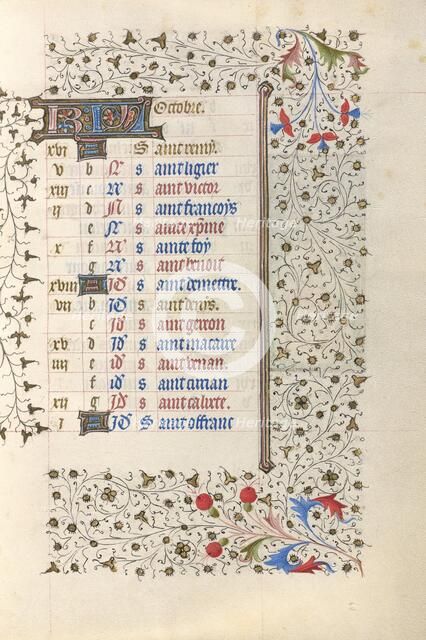 KL Octobre.
xvi A S aint remy.
v b N s aint ligier
xiii c N s aint victor
ii d N s aint francoys
e N s ainte xp̄ine
x f N s ainte foy
g N s aint benoit
xviii A Id s aint demettre.
vii b Id s aint denys.
c Id s aint gereon
xv d Id s aint macaire
iiii e id s aint venan.
f id s aint ciirian
xii g Id s aint calixte.
i A Id S aint offranc
Heritage
Heritage